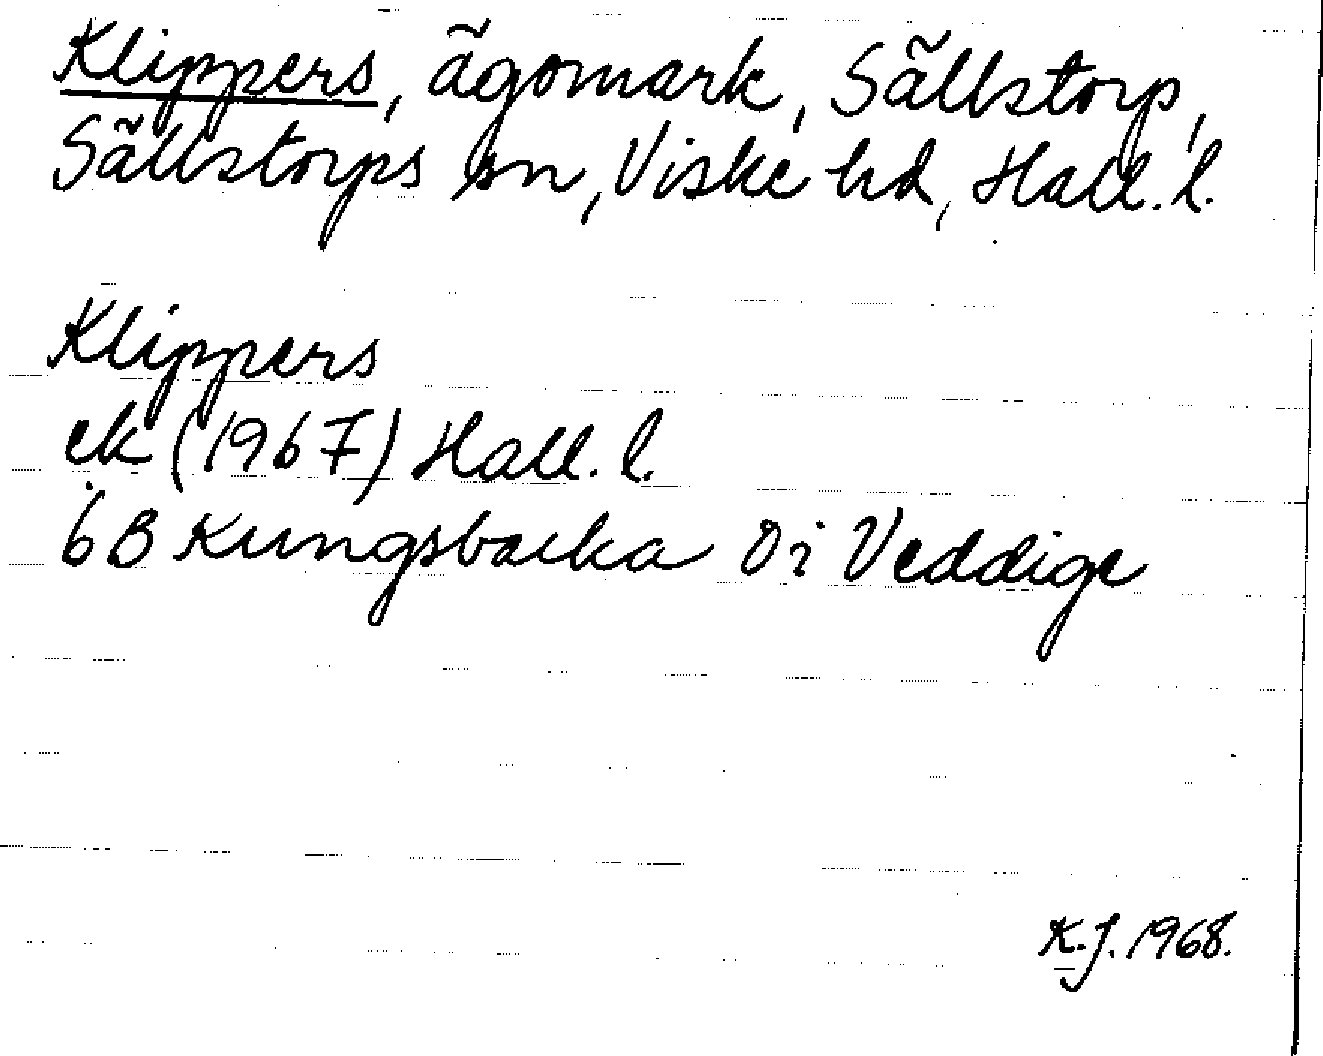 Klippers, ägomark, Sällstorp,
Sällstorps sn, Viske hd, Hall. l.
Klippers
ek (1967) Hall. l.
6B Kungsbacka 0i Veddige
K.J. 1968.